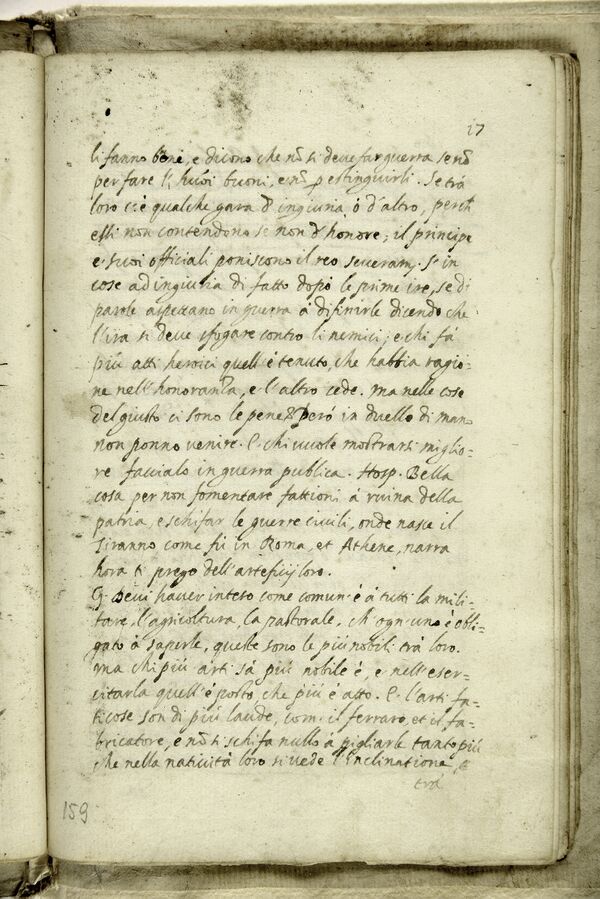 17
li fanno bene, e dicono che nõ si deve far guerra se nõ
per fare l'huoi buoni, e nõ p estinguirli. Se trà
loro c'è qualche gara d' ingiuria, ò d'altro, perch
essi non contendono se non d' honore; il principe
e suoi officiali poniscono il reo severam. s' in
cose ad ingiuria di fatto dopò le prime ire, se di
parole aspettano in guerra à difinirle dicendo che
l'ira si deve sfogare contro li nemici; e chi fà
più atti heroici quell'è tenuto, che habbia ragio-
ne nell'honoranza, e l'altro cede. ma nelle cose
del giusto ci sono le pene. Però in duello di mano
non ponno venire. E chi vuole mostrarsi miglio-
re faccialo in guerra publica. Hosp. Bella
cosa per non fomentare fattioni à ruina della
patria, e schifar le guerre civili, onde nasce il
Tiranno come fù in Roma, et Athene, narra
hora ti prego dell'arteficij loro.
G. Devi haver inteso come comun'è à tutti la mili-
tare, l'agricoltura, la pastorale, ch' ogn'uno è obli-
gato à saperle, queste sono le più nobili trà loro.
ma chi più arti sà più nobile è, e nell'eser-
citarla quell'è posto che più è atto. E l'arti fa-
ticose son di più laude, com' il ferraro, et il fa-
bricatore, e nõ si schifa nullo à pigliarle tanto più
che nella natività loro si vede l'Enclinatione, e
trà
159